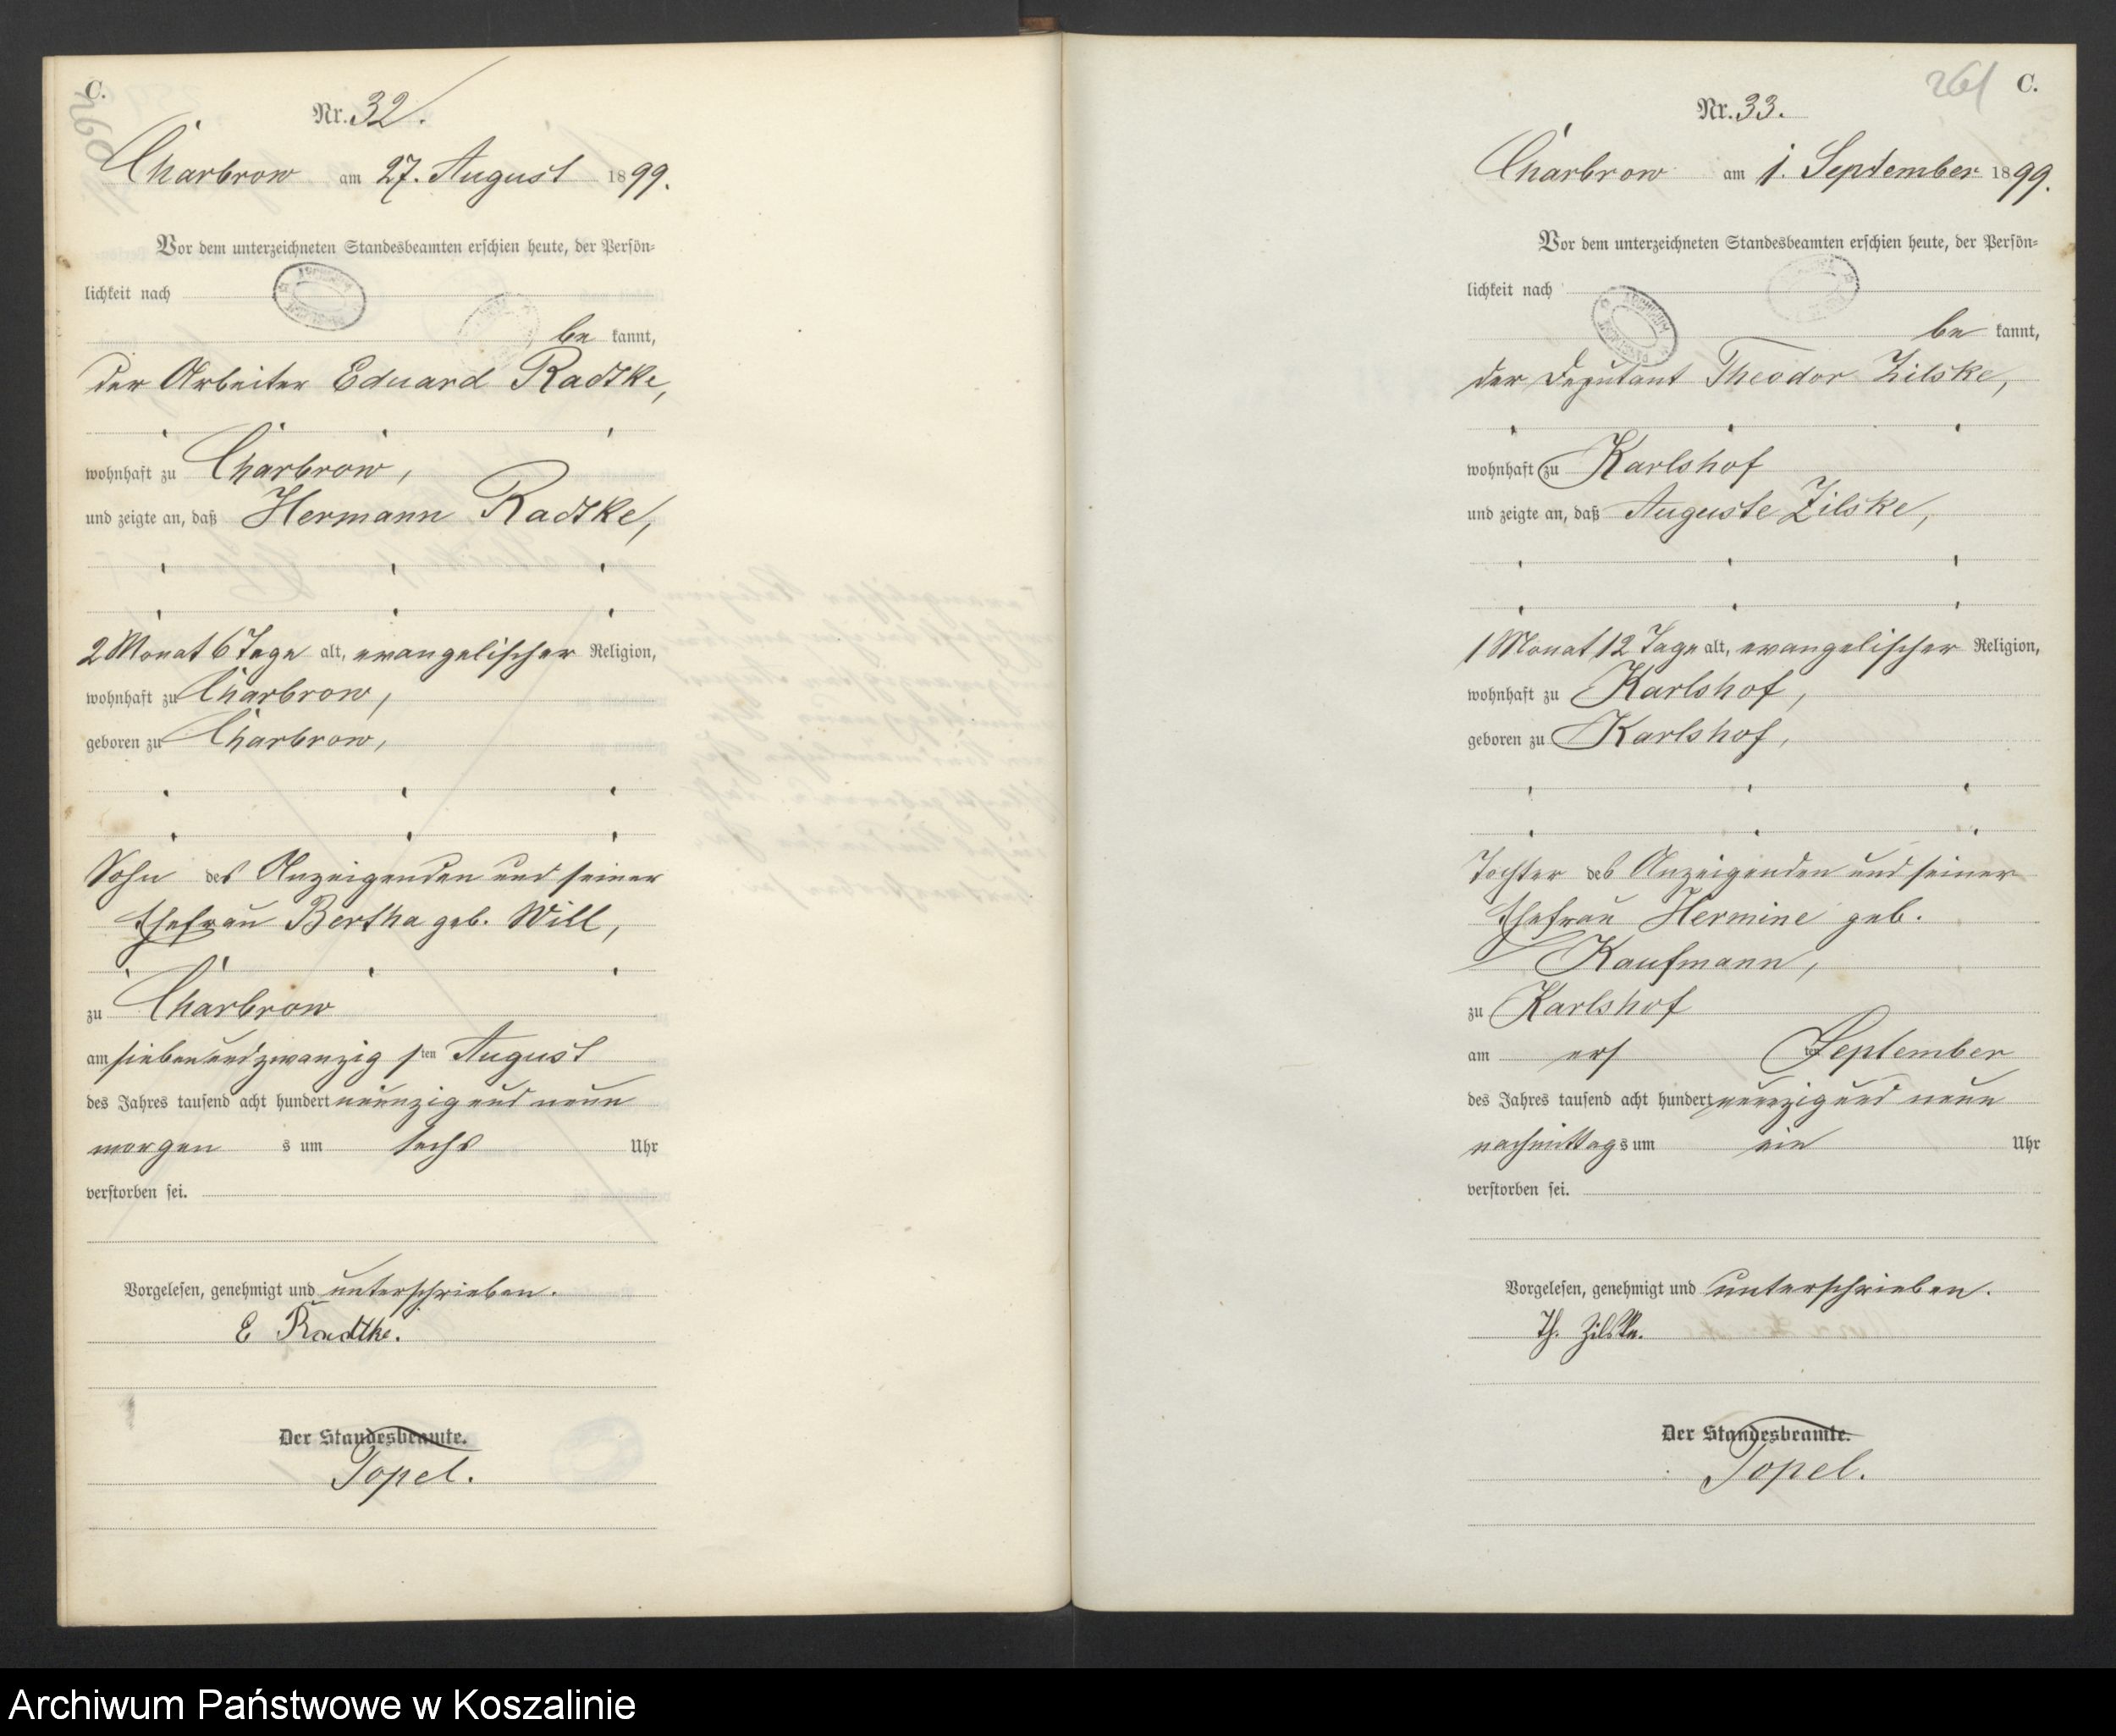 C.
260
Nr. 32.
Charbrow am 27. August 1899.
Vor dem unterzeichneten Standesbeamten erschien heute, der Persön-
lichkeit nach
be kannt,
der Arbeiter Eduard Radtke,
wohnhaft zu Charbrow,
und zeigte an, daß Hermann Radtke,
2 Monat 6 Tage alt, evangelischer Religion,
wohnhaft zu Charbrow,
geboren zu Charbrow,
Sohn des Anzeigenden und seiner
Ehefrau Bertha geb. Will,
zu Charbrow
am siebenundzwanzigsten August
des Jahres tausend acht hundert neunzig und neun
morgen s um sechs Uhr
verstorben sei.
Vorgelesen, genehmigt und unterschrieben.
E Radtke.
Der Standesbeamte.
Topel.
261 C.
Nr. 33.
Charbrow am 1. September 1899.
Vor dem unterzeichneten Standesbeamten erschien heute, der Persön-
lichkeit nach
be kannt,
der Deputant Theodor Zilske,
wohnhaft zu Karlshof
und zeigte an, daß Auguste Zilske,
1 Monat 12 Tage alt, evangelischer Religion,
wohnhaft zu Karlshof,
geboren zu Karlshof,
Tochter des Anzeigenden und seiner
Ehefrau Hermine geb.
Kaufmann,
zu Karlshof
am ersten September
des Jahres tausend acht hundert neunzig und neun
nachmittags um ein Uhr
verstorben sei.
Vorgelesen, genehmigt und unterschrieben.
Th. Zilske.
Der Standesbeamte.
Topel.
Archiwum Państwowe w Koszalinie